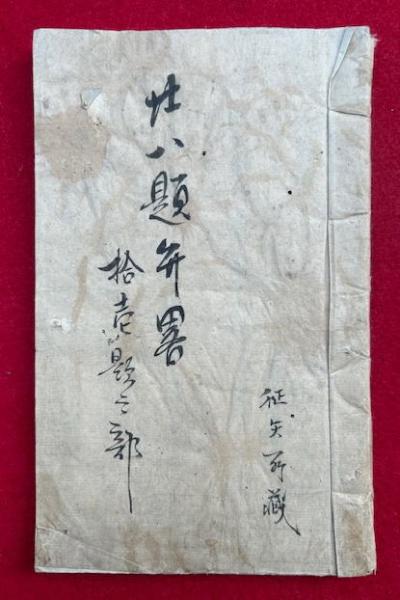 廿八題弁畧
拾壱題之部
征矢所蔵